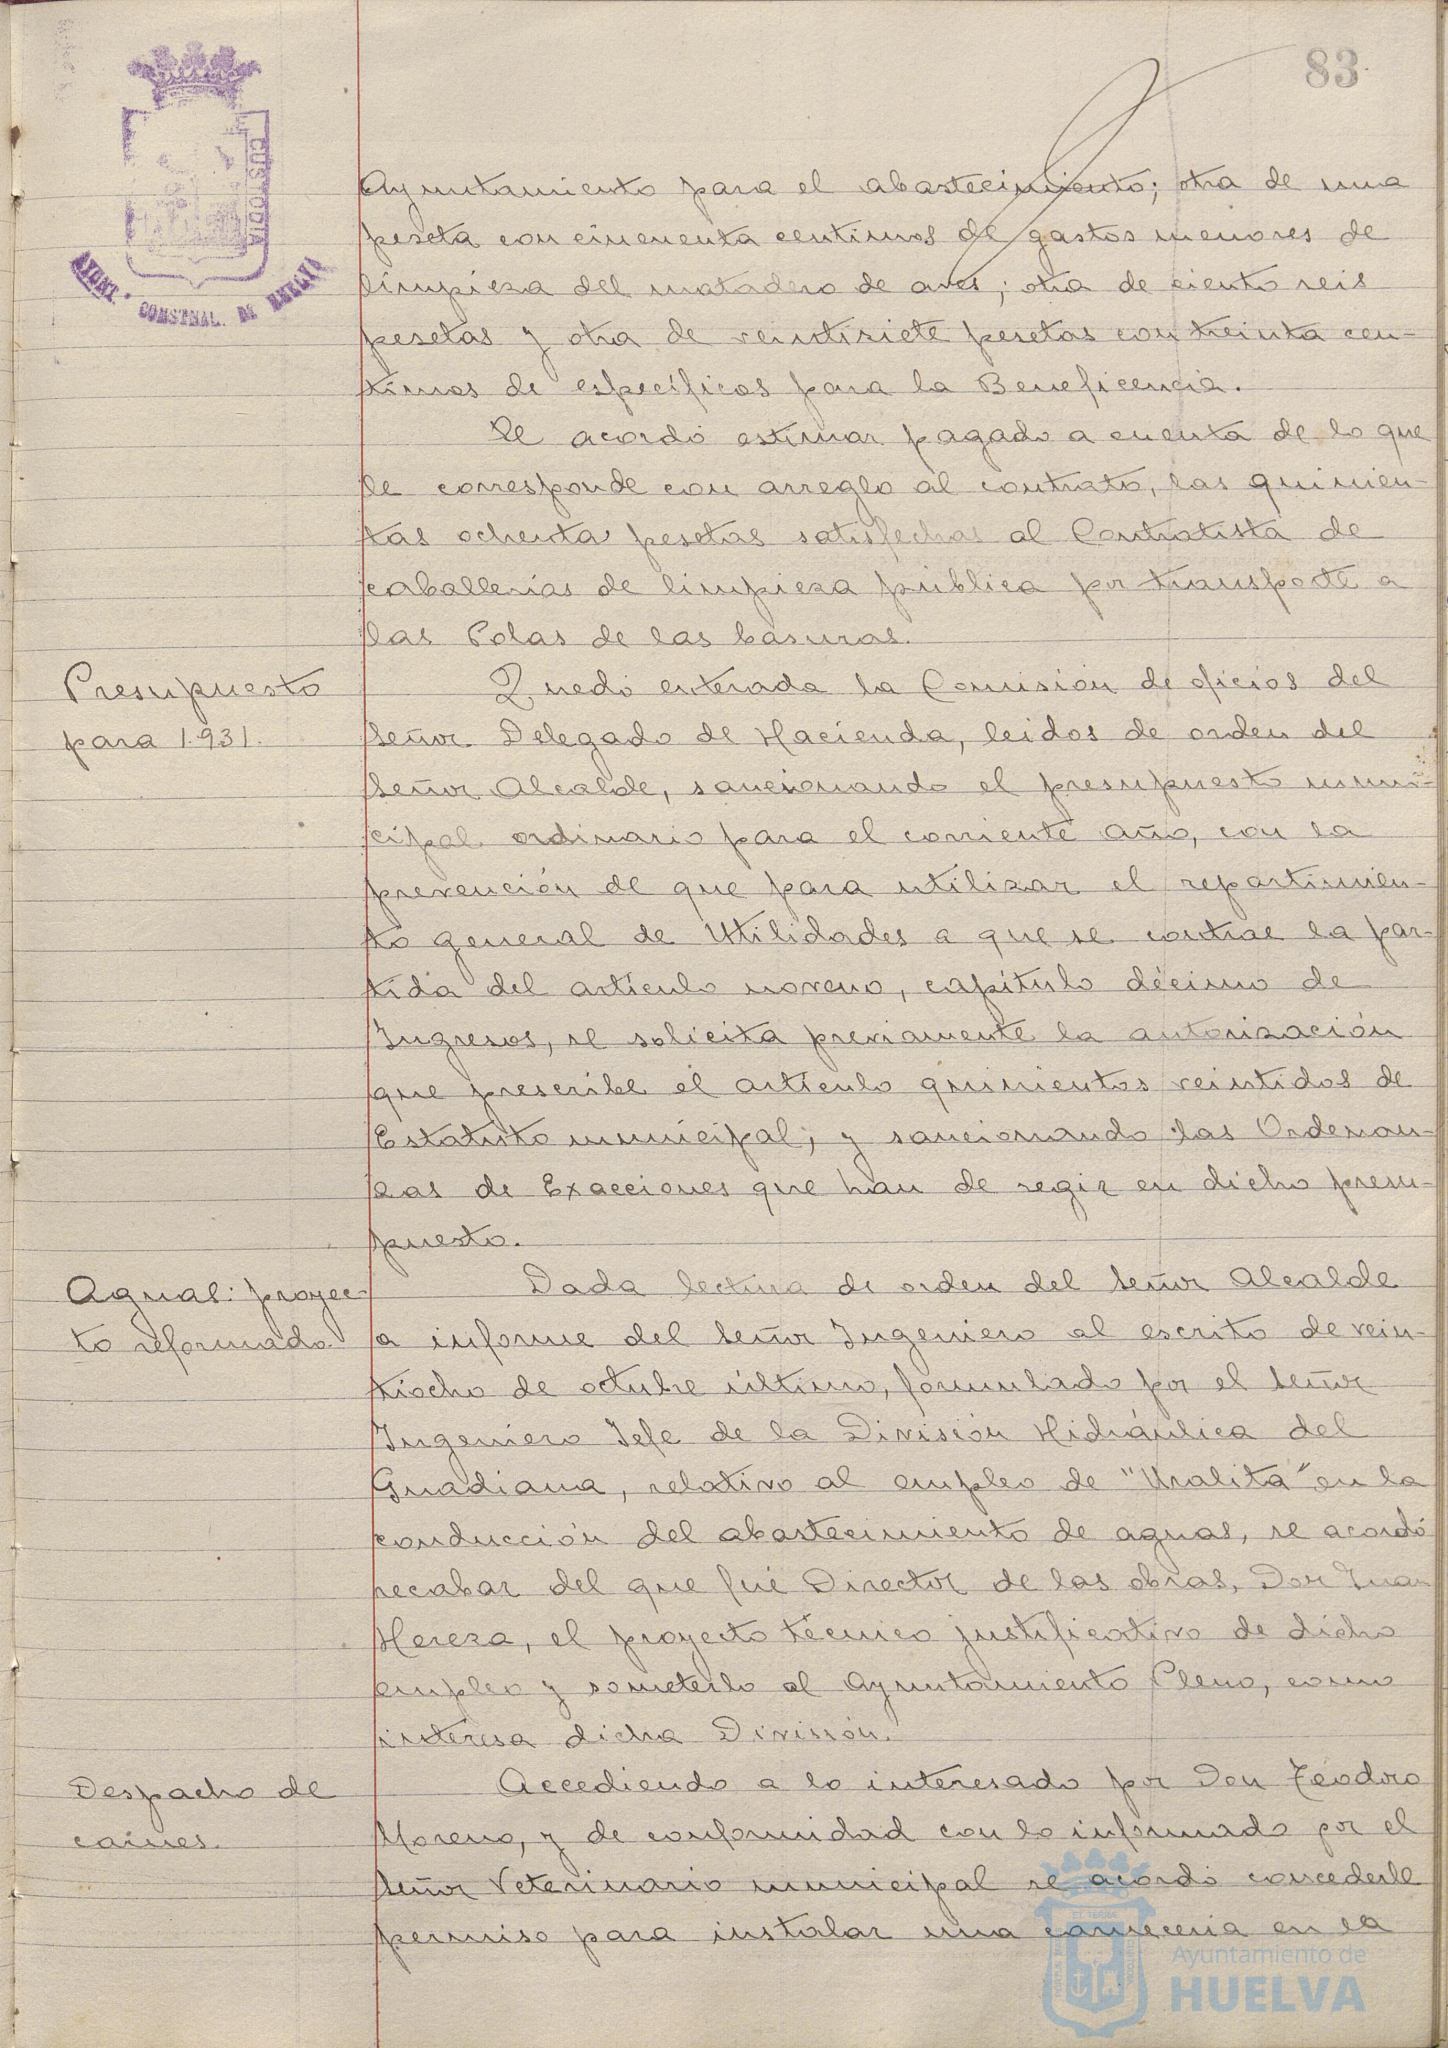 83
CUSTODIA
AYUNT. CONSTNAL. DE HUELVA
Ayuntamiento para el abastecimiento; otra de una
peseta con cincuenta centimos de gastos menores de
limpieza del matadero de aves; otra de ciento seis
pesetas y otra de veintisiete pesetas con treinta cen-
timos de específicos para la Beneficencia.
Se acordó estimar pagado a cuenta de lo que
le corresponde con arreglo al contrato, las quinien-
tas ochenta pesetas satisfechas al Contratista de
caballerías de limpieza pública por transporte a
las Colas de las basuras.
Presupuesto
para 1.931.
Quedó enterada la Comisión de oficios del
Señor Delegado de Hacienda, leidos de orden del
Señor Alcalde, sancionando el presupuesto muni-
cipal ordinario para el corriente año, con la
prevención de que para utilizar el repartimien-
to general de Utilidades a que se contrae la par-
tida del artículo noveno, capítulo décimo de
Ingresos, se solicita previamente la autorización
que prescribe el artículo quinientos veintidos de
Estatuto municipal; y sancionando las Ordenan-
zas de Exacciones que han de regir en dicho presu-
puesto.
Aguas: proyec-
to reformado.
Dada lectura de orden del Señor Alcalde
a informe del Señor Ingeniero al escrito de vein-
tiocho de octubre último, formulado por el Señor
Ingeniero Jefe de la División Hidráulica del
Guadiana, relativo al empleo de "Uralita" en la
conducción del abastecimiento de aguas, se acordó
recabar del que fué Director de las obras, Don Juan
Hereza, el proyecto técnico justificativo de dicho
empleo y someterlo al Ayuntamiento Pleno, como
interesa dicha División.
Despacho de
carnes.
Accediendo a lo interesado por Don Teodoro
Moreno, y de conformidad con lo informado por el
Señor Veterinario municipal se acordó concederle
permiso para instalar una carnecería en la
Ayuntamiento de
HUELVA